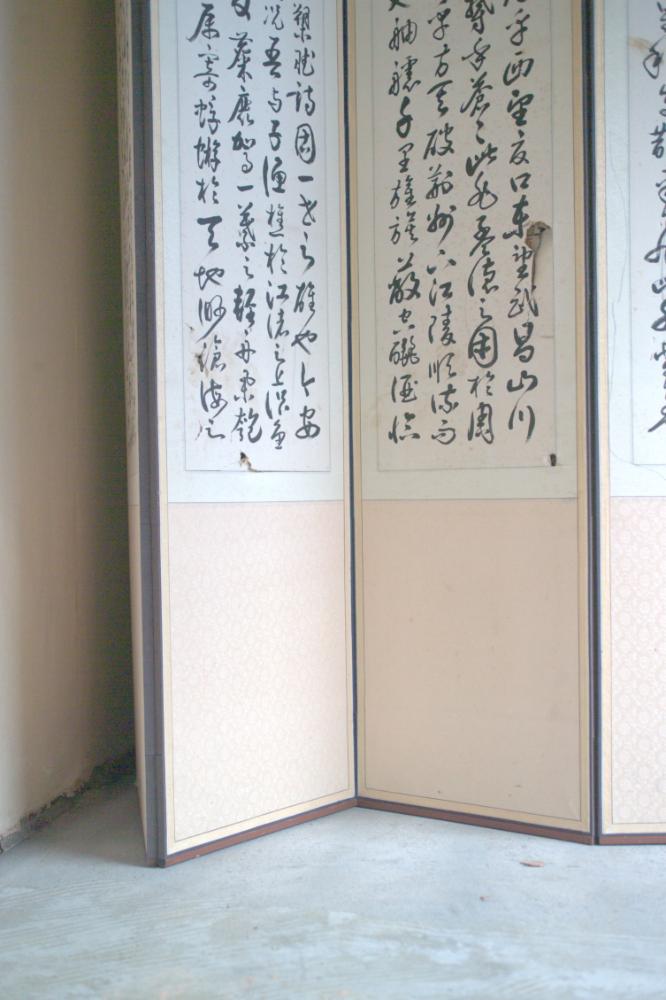 乎西望夏口東望武昌山川
鬱乎蒼々此非孟德之困於周
乎方其破荊州下江陵順流而
舳艫千里旌旗蔽空釃酒臨
槊賦詩固一世之雄也今安
況吾与子漁樵於江渚之上侶魚
友麋鹿駕一葉之輕舟舉匏
屬寄蜉蝣於天地渺滄海之